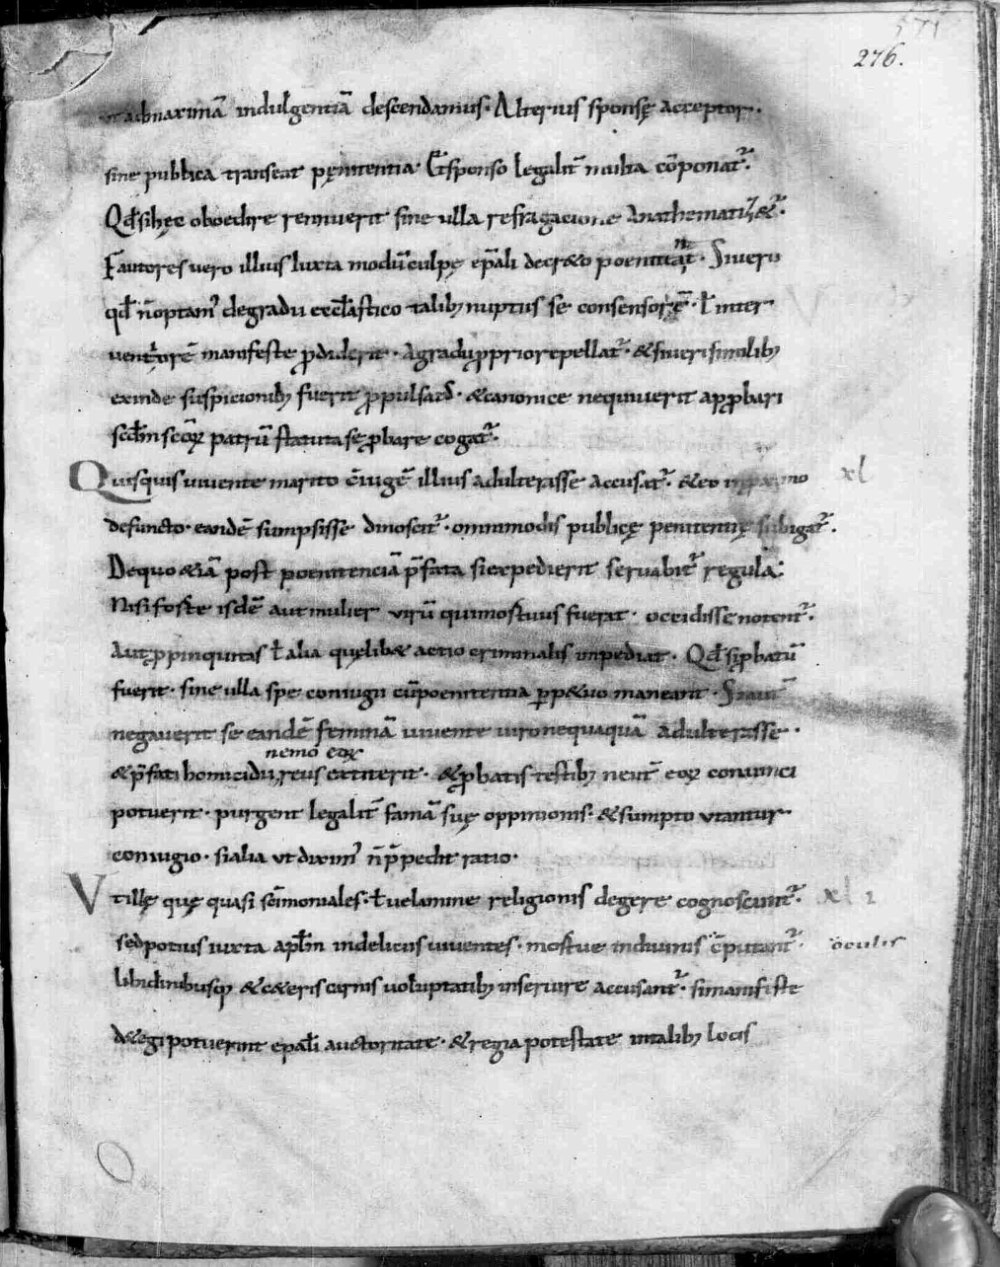 276.
ut ad maximā indulgentiā descendamus. Alterius sponsę acceptor.
sine publica transeat pęnitentia. Et sponso legalit̄ multa cōponat̄.
Qđ si hęc oboedire rennuerit sine ulla refragacione Anathematiz&̄.
Fautores vero illius Iuxta modū culpę ep̄ali decr&o poeniteant. Si vero
qđ n̄ optam' de gradu eccl̄astico talib; nuptiis se consensorē. ł inter
ventorē manifeste p̄diderit. A gradu proprio repellat̄. & si verisimilib;
exinde suspicionib; fuerit ꝓpulsatus. & canonice nequiverit approbari
scd̄m scōꝝ patrū statuta se ꝓbare cogat̄.
Quisquis vivente marito c̄iugē illius adulterasse accusat̄. & eo in proximo xl
defuncto. eandē sumpsisse dinoscit̄. omnimodis publicę penitentię subigat̄.
De quo &iā post poenitenciā p̄fata si expedierit servabit̄ regula.
Nisi forte isdē aut mulier virū qui mortuus fuerat. occidisse notent̄.
Aut ꝓpinquitas ł alia quęlib& actio criminalis impediat. Qđ si ꝓbatū
fuerit. sine ulla spe coniugii cū poenitentia perp&uo maneant. Si autē
negaverit se eandē feminā vivente viro nequaquā adulterasse.
nemo eoꝝ
& p̄fati homicidii reus extiterit. & ꝓbatis testib; neut̄ eoꝝ convinci
potuerit. purgent legalit̄ famā suę oppinionis. & sumpto utantur
coniugio. si alia ut dixim' n̄ p̄pedit ratio.
Vt illę quę quasi sc̄imoniales. ł velamine religionis degere cognoscunt̄. xli
sed potius iuxta apl̄m in deliciis viventes. mortue in divinis c̄putant̄. oculis
libidinibusq; & c&eris carnis voluptatib; inservire accusant̄. si manifeste
d&egi potuerint ep̄ali auctoritate. & regia potestate in talib; locis